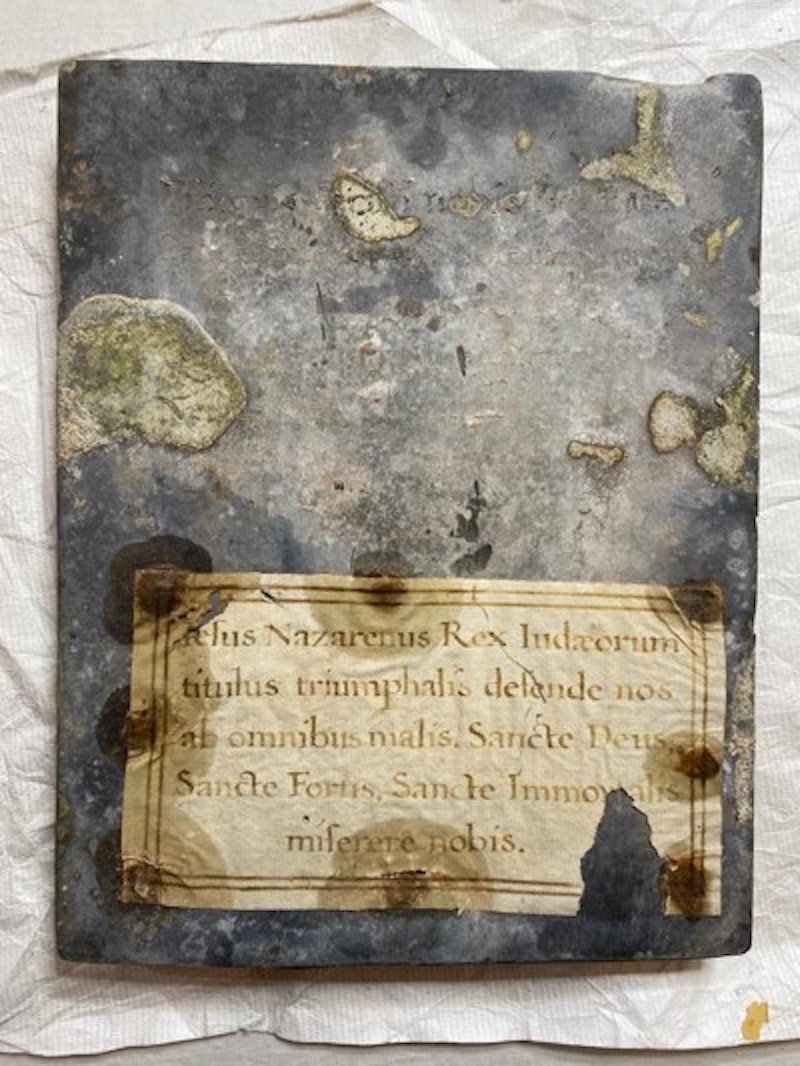 Jeſus Nazarenus Rex Iudæorum
titulus triumphalis defende nos
ab omnibus malis. Sancte Deus,
Sancte Fortis, Sancte Immortalis
miſerere nobis.